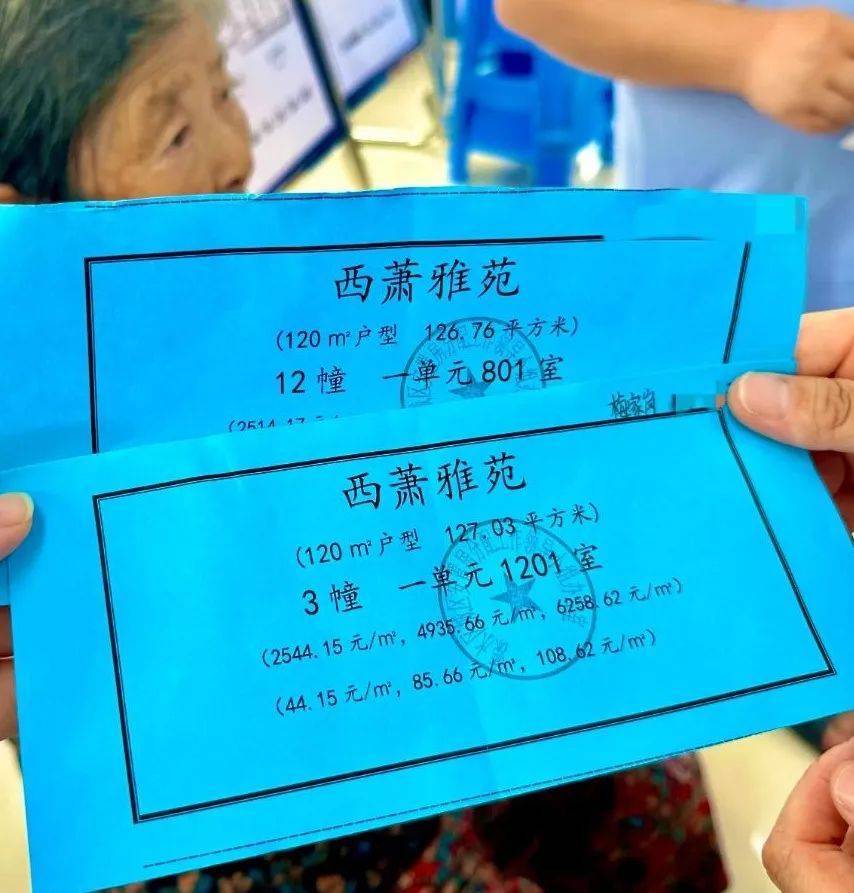 西萧雅苑
(120㎡户型 126.76平方米)
12幢 一单元801室
(2514.17元/
梅家岗
西萧雅苑
(120㎡户型 127.03平方米)
3幢 一单元1201室
(2544.15元/㎡, 4935.66元/㎡, 6258.62元/㎡)
(44.15元/㎡, 85.66元/㎡, 108.62元/㎡)